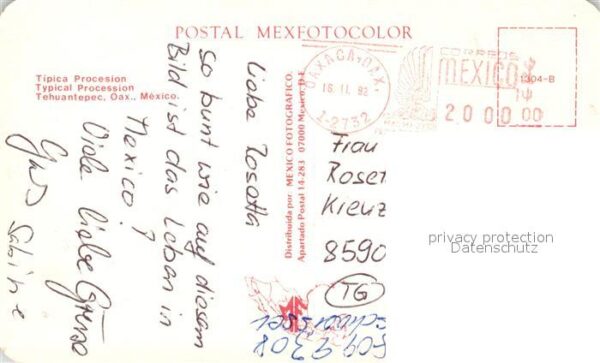 POSTAL MEXFOTOCOLOR
Típica Procesion
Typical Procession
Tehuantepec, Oax., México.
Liebe Rosetta
So bunt wie auf diesem
Bild ist das Leben in
Mexico!
Viele liebe Grüsse
Sabine
Distribuida por MEXICO FOTOGRAFICO.
Apartado Postal 14-283 07000 Mexico, D.F.
OAXACA, OAX.
16. II. 92
1-2732
CORREOS
MEXICO
2000.00
1304-B
Frau
Roset
Kreuz
8590
TG
privacy protection
Datenschutz